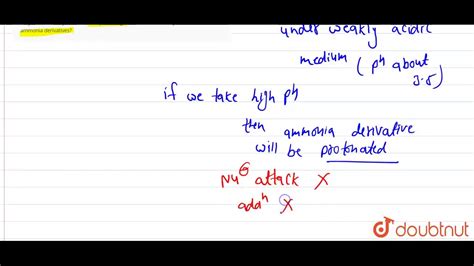 ammonia derivatives?
under weakly acidic
medium (ph about
3.5)
if we take high ph
then ammonia derivative
will be protonated
Nu⊖ attack X
adaⁿ X
doubtnut